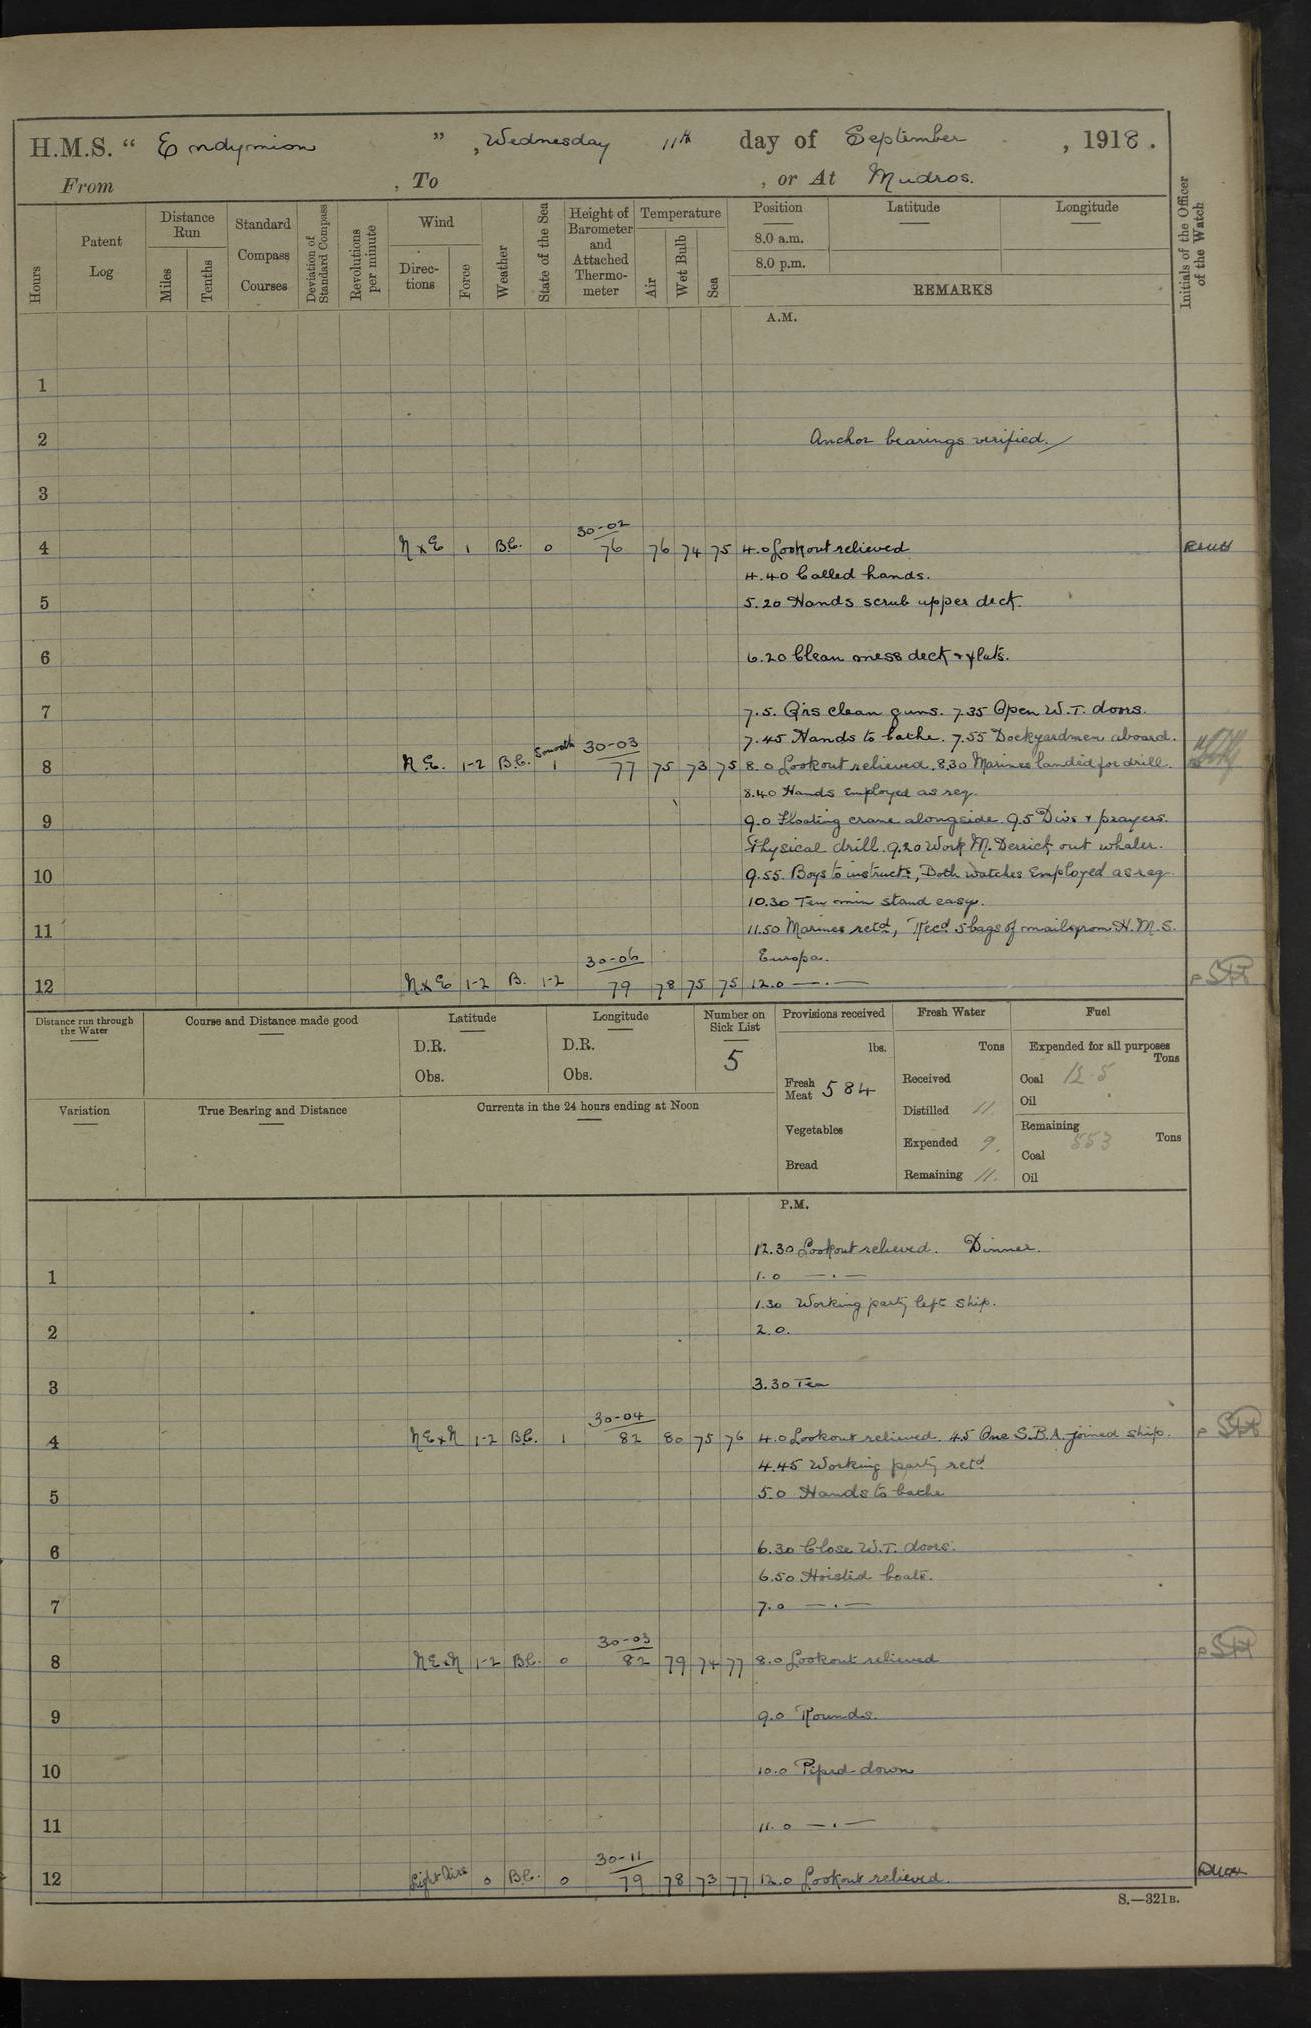 H.M.S. “ Endymion ” , Wednesday 11th day of September , 1918 .
From , To , or At Mudros.
Hours
Patent Log
Distance Run
Miles
Tenths
Standard Compass Courses
Deviation of Standard Compass
Revolutions per minute
Wind
Directions
Force
Weather
State of the Sea
Height of Barometer and Attached Thermometer
Temperature
Air
Wet Bulb
Sea
Position
8.0 a.m.
8.0 p.m.
Latitude
Longitude
REMARKS
Initials of the Officer of the Watch
A.M.
1
2 Anchor bearings verified.
3
30-02
4 N x E 1 B.C. 0 76 76 74 75 4.0 Lookout relieved
4.40 Called hands.
5 5.20 Hands scrub upper deck.
6 6.20 Clean mess deck & flats.
7 7.5. Q'rs clean guns. 7.35 Open W.T. doors.
7.45 Hands to bathe. 7.55 Dockyardmen aboard.
Smooth 30-03
8 N E. 1-2 B.C. 1 77 75 73 75 8.0 Lookout relieved. 8.30 Marines landed for drill.
8.40 Hands employed as req.
9 9.0 Floating crane alongside. 9.5 Divs & prayers.
Physical drill. 9.20 Work M. Derrick out whaler.
10 9.55. Boys to instructn, Both watches employed as req.
10.30 Ten min stand easy.
11 11.50 Marines retd, Recd 5 bags of mails from H.M.S.
30-06 Europa.
12 N x E 1-2 B. 1-2 79 78 75 75 12.0 — . —
Distance run through the Water
Course and Distance made good
Latitude
D.R.
Obs.
Longitude
D.R.
Obs.
Number on Sick List
5
Provisions received
lbs.
Fresh Meat 584
Vegetables
Bread
Fresh Water
Tons
Received
Distilled 11
Expended 9.
Remaining 11.
Fuel
Expended for all purposes
Tons
Coal 12.5
Oil
Remaining
Tons
Coal 553
Oil
Variation
True Bearing and Distance
Currents in the 24 hours ending at Noon
P.M.
12.30 Lookout relieved. Dinner.
1 1.0 — . —
1.30 Working party left ship.
2 2.0.
3 3.30 Tea
30-04
4 NE x N 1-2 B.C. 1 82 80 75 76 4.0 Lookout relieved. 4.5 One S.B.A. joined ship.
4.45 Working party retd
5 5.0 Hands to bathe
6 6.30 Close W.T. doors.
6.50 Hoisted boats.
7 7.0 — . —
30-03
8 NE x N 1-2 B.C. 0 82 79 74 77 8.0 Lookout relieved
9 9.0 Rounds.
10 10.0 Piped down
11 11.0 — . —
30-11
12 Light Airs 0 B.C. 0 79 78 73 77 12.0 Lookout relieved.
S.—321B.